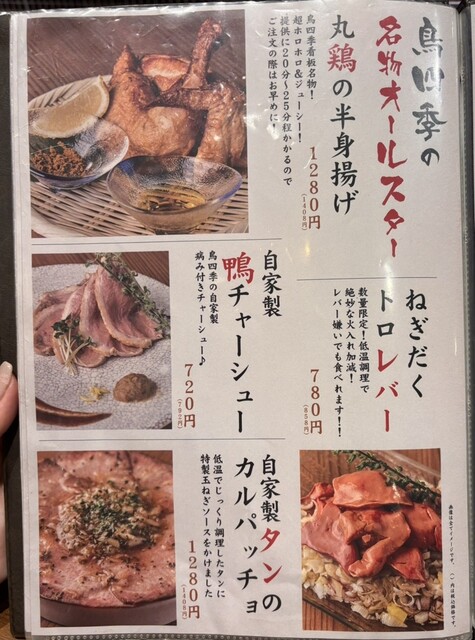 鳥四季の
名物オールスター
丸鶏の半身揚げ
1280円
(1408円)
鳥四季看板名物!
超ホロホロ&ジューシー!
提供に20分~25分程かかるので
ご注文の際はお早めに!
自家製
鴨チャーシュー
鳥四季の自家製
病み付きチャーシュー♪
720円
(792円)
ねぎだく
トロレバー
数量限定!低温調理で
絶妙な火入れ加減!
レバー嫌いでも食べれます!!
780円
(858円)
自家製タンの
カルパッチョ
低温でじっくり調理したタンに
特製玉ねぎソースをかけました
1280円
(1408円)
画像は全てイメージです。
( )内は税込価格です。